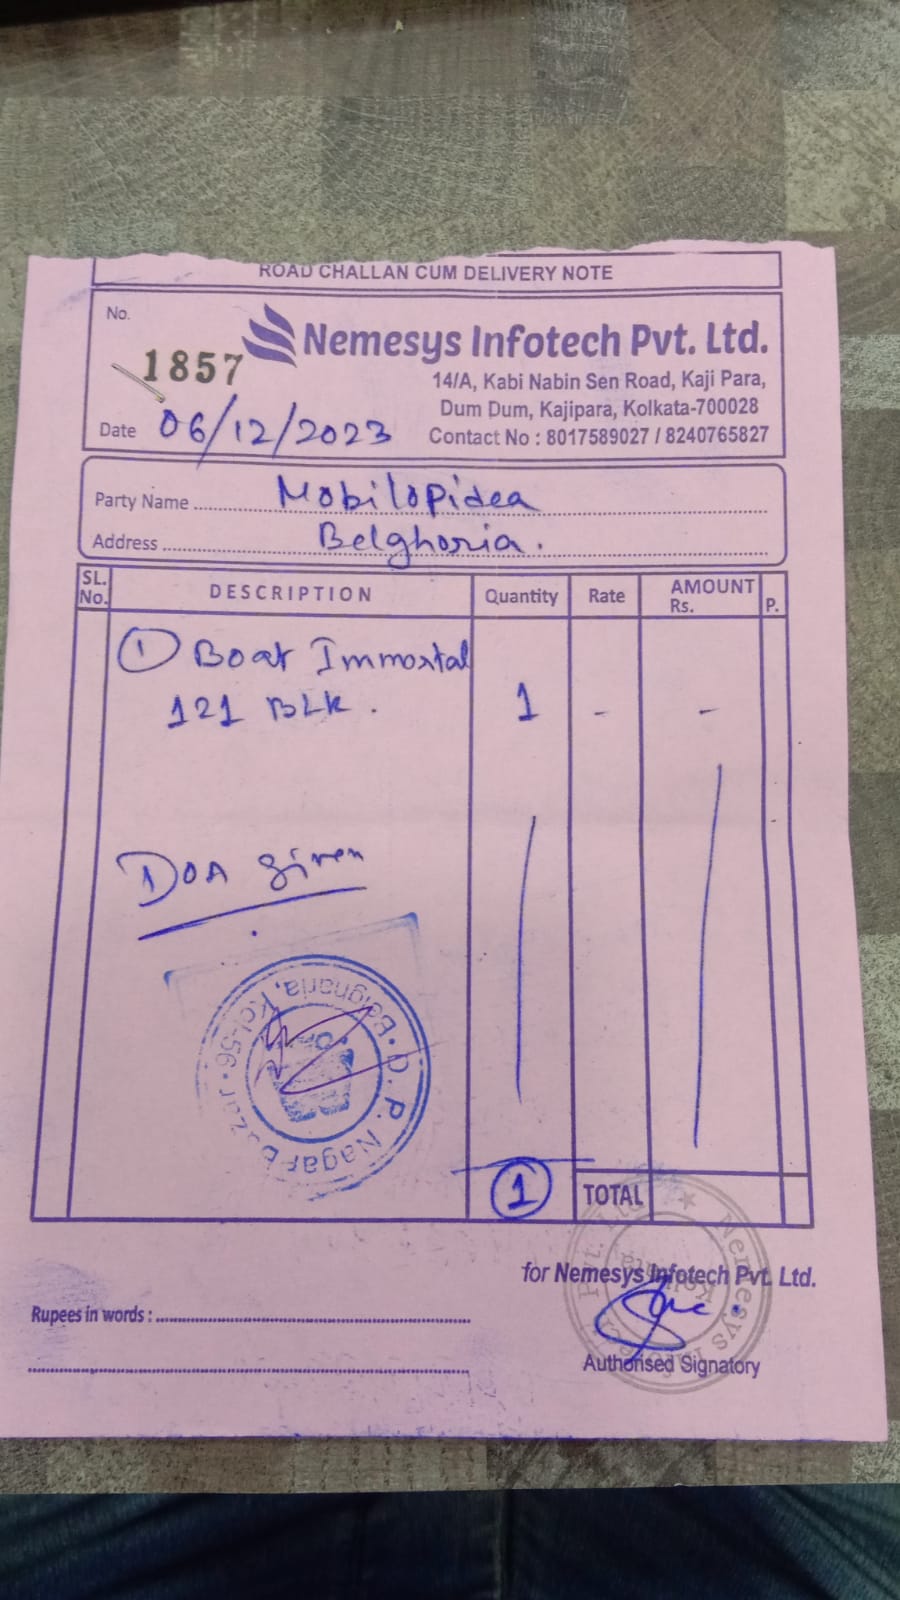 ROAD CHALLAN CUM DELIVERY NOTE
No.
1857
Nemesys Infotech Pvt. Ltd.
14/A, Kabi Nabin Sen Road, Kaji Para,
Dum Dum, Kajipara, Kolkata-700028
Date 06/12/2023
Contact No : 8017589027 / 8240765827
Party Name Mobilopidea
Address Belghoria.
SL. No. DESCRIPTION Quantity Rate AMOUNT Rs. P.
① Boat Immortal
121 BLK. 1 - -
DOA given
D. P. Nagar Bazar • Belgharia, Kol-56 •
① TOTAL
for Nemesys Infotech Pvt. Ltd.
Nemesys Infotech Pvt. Ltd. ★
Kolkata
Rupees in words :
Authorised Signatory